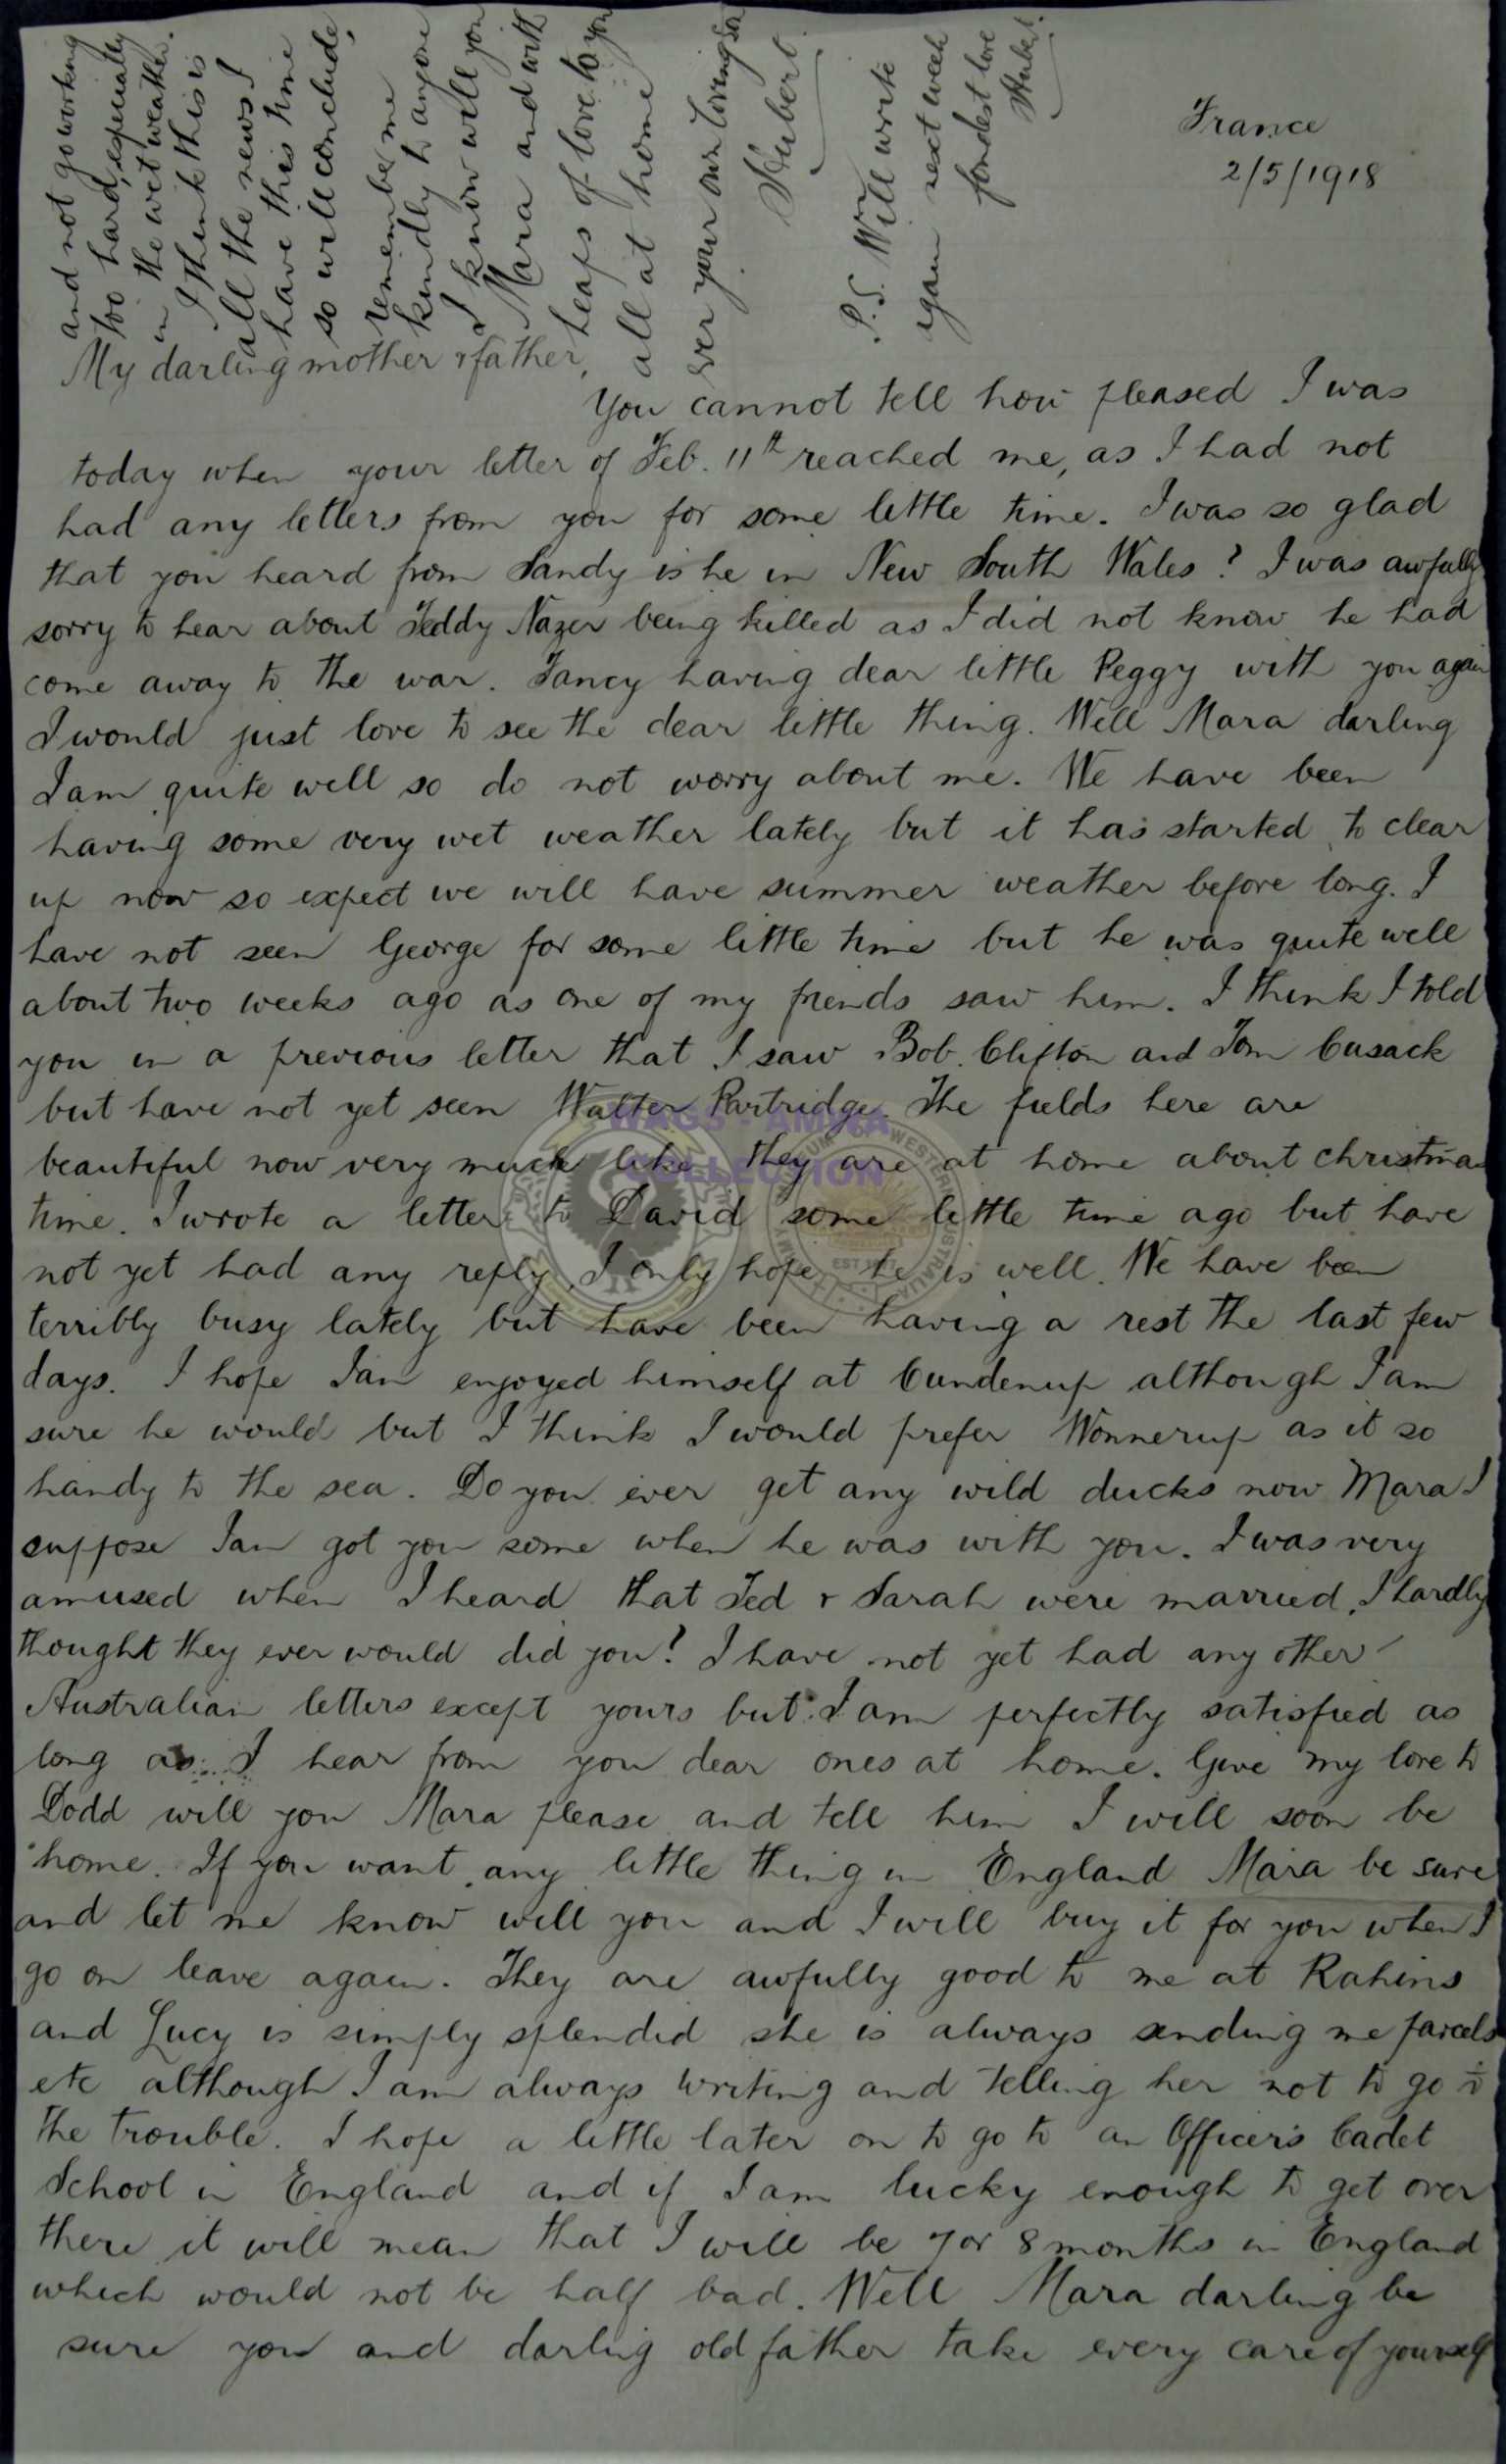 France
2/5/1918
My darling mother & father,
You cannot tell how pleased I was
today when your letter of Feb. 11th reached me, as I had not
had any letters from you for some little time. I was so glad
that you heard from Sandy is he in New South Wales? I was awfully
sorry to hear about Teddy Nazer being killed as I did not know he had
come away to the war. Fancy having dear little Peggy with you again
I would just love to see the dear little thing. Well Mara darling
I am quite well so do not worry about me. We have been
having some very wet weather lately but it has started to clear
up now so expect we will have summer weather before long. I
have not seen George for some little time but he was quite well
about two weeks ago as one of my friends saw him. I think I told
you in a previous letter that I saw Bob. Clifton and Tom Cusack
but have not yet seen Walter Partridge. The fields here are
beautiful now very much like they are at home about christmas
time. I wrote a letter to David some little time ago but have
not yet had any reply, I only hope he is well. We have been
terribly busy lately but have been having a rest the last few
days. I hope Ian enjoyed himself at Cundenup although I am
sure he would but I think I would prefer Wonnerup as it so
handy to the sea. Do you ever get any wild ducks now Mara I
suppose Ian got you some when he was with you. I was very
amused when I heard that Ted & Sarah were married, I hardly
thought they ever would did you? I have not yet had any other
Australian letters except yours but I am perfectly satisfied as
long as I hear from you dear ones at home. Give my love to
Dodd will you Mara please and tell him I will soon be
home. If you want any little thing in England Mara be sure
and let me know will you and I will buy it for you when I
go on leave again. They are awfully good to me at Rahins
and Lucy is simply splendid she is always sending me parcels
etc although I am always writing and telling her not to go to
the trouble. I hope a little later on to go to an Officer's Cadet
School in England and if I am lucky enough to get over
there it will mean that I will be 7 or 8 months in England
which would not be half bad. Well Mara darling be
sure you and darlig old father take every care of yourself
and not go working
too hard, especially
in the wet weather.
I think this is
all the news I
have this time
so will conclude,
remember me
kindly to anyone
I know will you
Mara and with
heaps of love to you
all at home
ever your own loving son
Hubert.
P.S. Will write
again next week
fondest love
Hubert.
WAGS - AMWA
COLLECTION